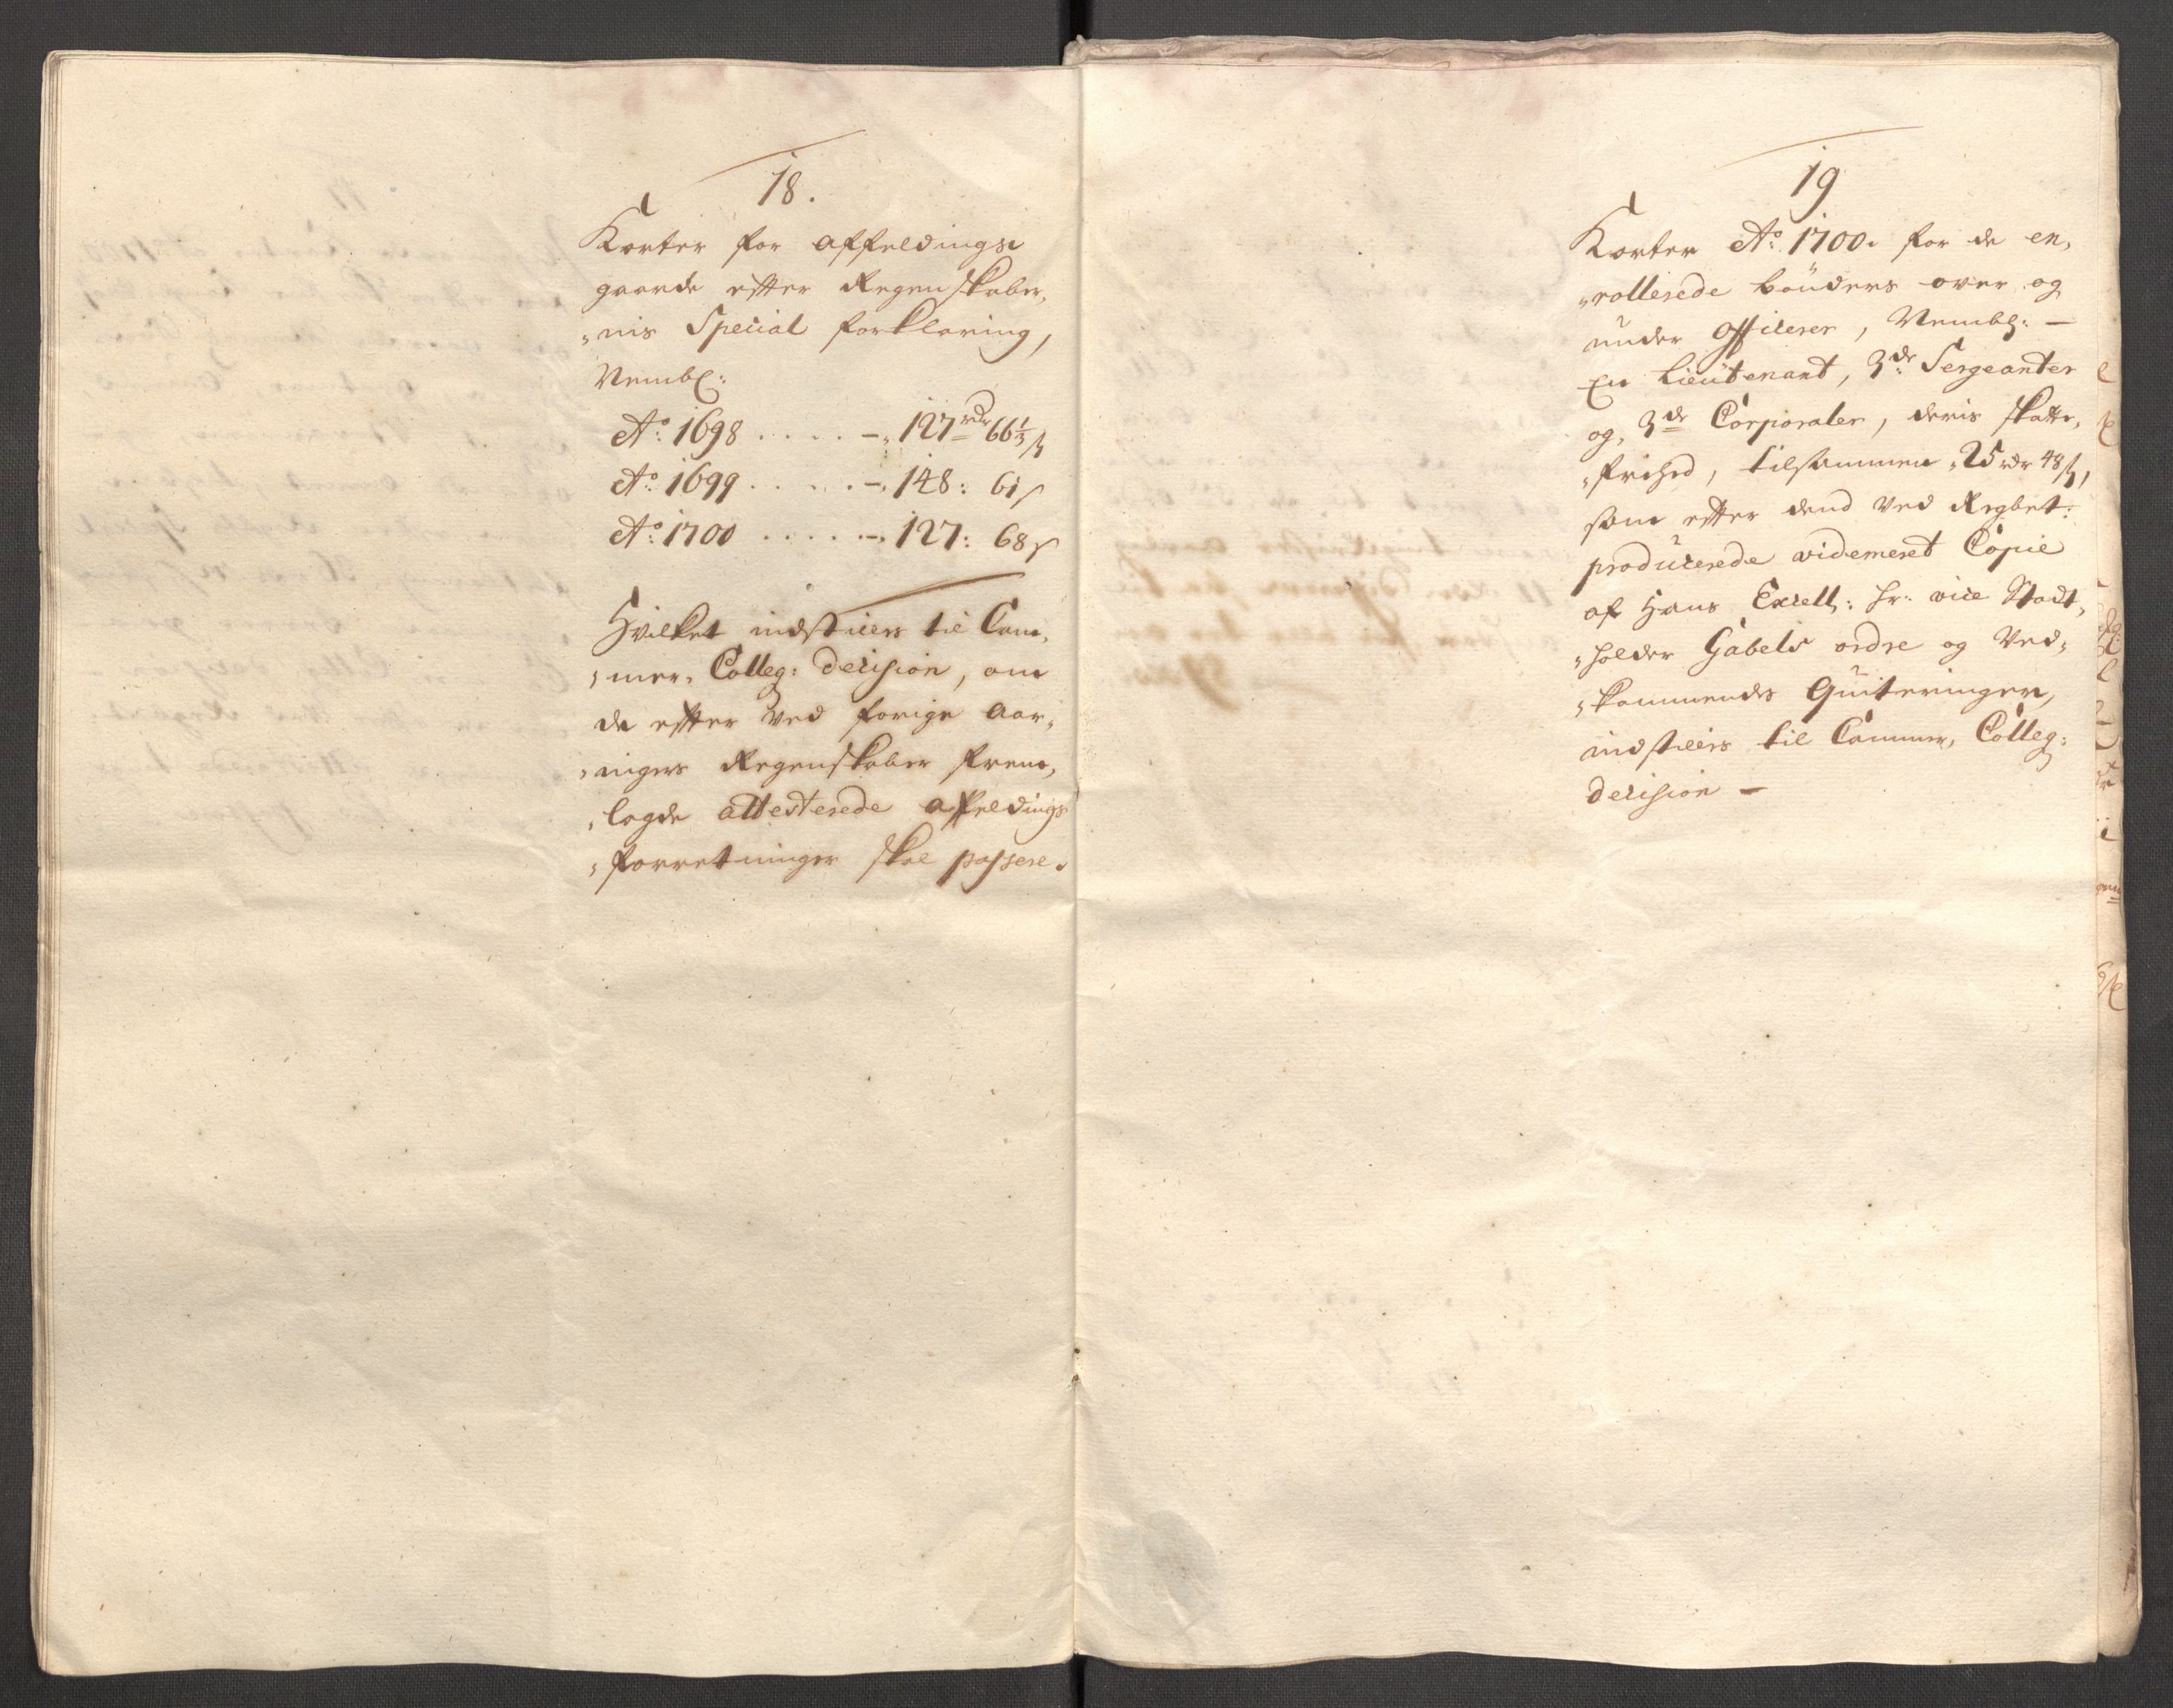 18.
Korter for affeldings
gaarde efter Regenskaber,
„nis Special forklaring,
Nembl:
Ao: 1698 . . . . . –„ 127 rdr 66 1/3 s
Ao: 1699 . . . . . –„ 148: 61 s
Ao: 1700 . . . . . –„ 127: 68 s
Hvilket indstilles til Cam„
„mer„ Colleg: Decision, om
de efter ved forige Aar„
„ingers Regenskaber frem„
„lagde attesterede affeldings
„forretninger skal passere.
19
Korter Ao: 1700. for de en„
„rollerede bønders over og
under Officerer, Nembl: –
En Lieutenant, 3de Sergeanter
og, 3de Corporaler, deris skatte„
„frihed, tilsammen „25 rdr 48 s,
som efter dend ved Regbet:
producerede videmeret Copie
af Hans Excell: Hr: vice Stadt„
„holder Gabels ordre og Ved„
„kommendes Quiteringer,
indstilles til Cammer„ Colleg:
decision –